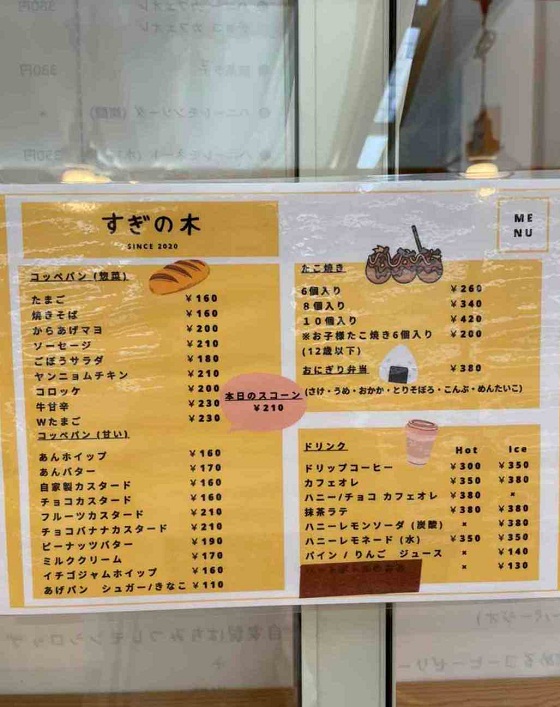 すぎの木
SINCE 2020
ME
NU
コッペパン (惣菜)
たまご ¥160
焼きそば ¥160
からあげマヨ ¥200
ソーセージ ¥210
ごぼうサラダ ¥180
ヤンニョムチキン ¥210
コロッケ ¥200
牛甘辛 ¥230
Wたまご ¥230
コッペパン (甘い)
あんホイップ ¥160
あんバター ¥170
自家製カスタード ¥160
チョコカスタード ¥160
フルーツカスタード ¥210
チョコバナナカスタード ¥210
ピーナッツバター ¥190
ミルククリーム ¥170
イチゴジャムホイップ ¥160
あげパン シュガー/きなこ ¥110
本日のスコーン
¥210
たこ焼き
6個入り ¥260
8個入り ¥340
10個入り ¥420
※お子様たこ焼き6個入り ¥200
(12歳以下)
おにぎり弁当 ¥380
(さけ・うめ・おかか・とりそぼろ・こんぶ・めんたいこ)
ドリンク Hot Ice
ドリップコーヒー ¥300 ¥350
カフェオレ ¥350 ¥380
ハニー/チョコ カフェオレ ¥380 ×
抹茶ラテ ¥380 ¥380
ハニーレモンソーダ (炭酸) × ¥380
ハニーレモネード (水) ¥350 ¥350
パイン / りんご ジュース × ¥140
× ¥130